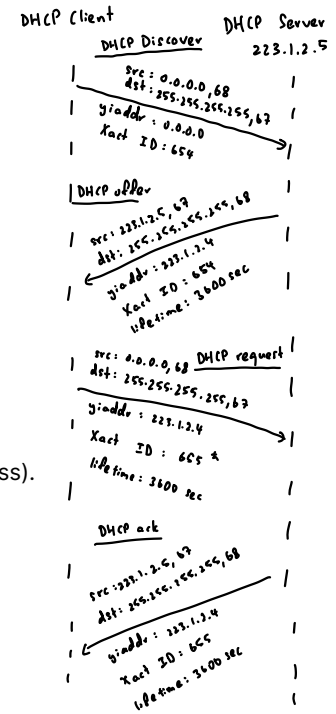 DHCP Client
DHCP Server
223.1.2.5
DHCP Discover
src: 0.0.0.0, 68
dst: 255.255.255.255, 67
yiaddr: 0.0.0.0
Xact ID: 654
DHCP offer
src: 223.1.2.5, 67
dst: 255.255.255.255, 68
yiaddr: 223.1.2.4
Xact ID: 654
lifetime: 3600 sec
DHCP request
src: 0.0.0.0, 68
dst: 255.255.255.255, 67
yiaddr: 223.1.2.4
Xact ID: 655 *
lifetime: 3600 sec
ss).
DHCP ack
src: 223.1.2.5, 67
dst: 255.255.255.255, 68
yiaddr: 223.1.2.4
Xact ID: 655
lifetime: 3600 sec